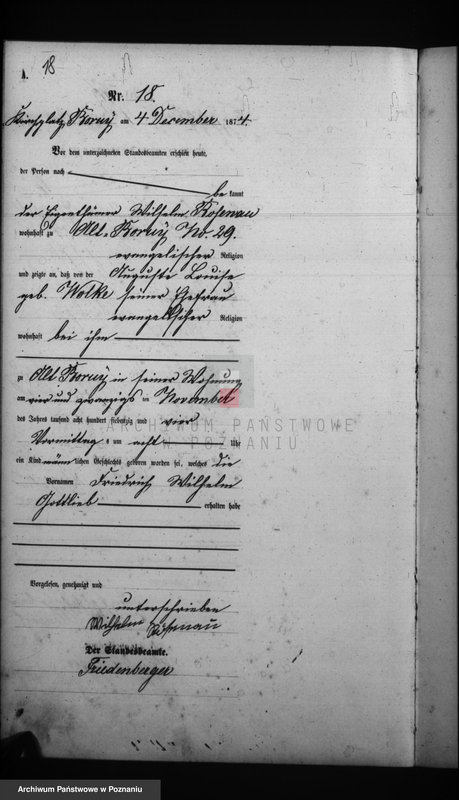 A. 18
Nr. 18.
Kirchplatz Boruÿ am 4 December 1874.
Vor dem unterzeichneten Standesbeamten erschien heute,
der Person nach
be kannt
der Eigenthümer Wilhelm Rosenau
wohnhaft zu Alt-Boruÿ No. 29.
evangelischer Religion
und zeigte an, daß von der Auguste Louise
geb. Wolke seiner Ehefrau
evangelischer Religion
wohnhaft bei ihm
zu Alt Boruÿ in seiner Wohnung
am vier und zwanzigs ten November
des Jahres tausend acht hundert siebenzig und vier
Vormittag s um acht Uhr
ein Kind männ lichen Geschlechts geboren worden sei, welches die
Vornamen Friedrich Wilhelm
Gottlieb erhalten habe
Vorgelesen, genehmigt und
unterschrieben
Wilhelm Rosenau
Der Standesbeamte.
Friedenberger
ARCHIWUM PAŃSTWOWE
W POZNANIU
Archiwum Państwowe w Poznaniu